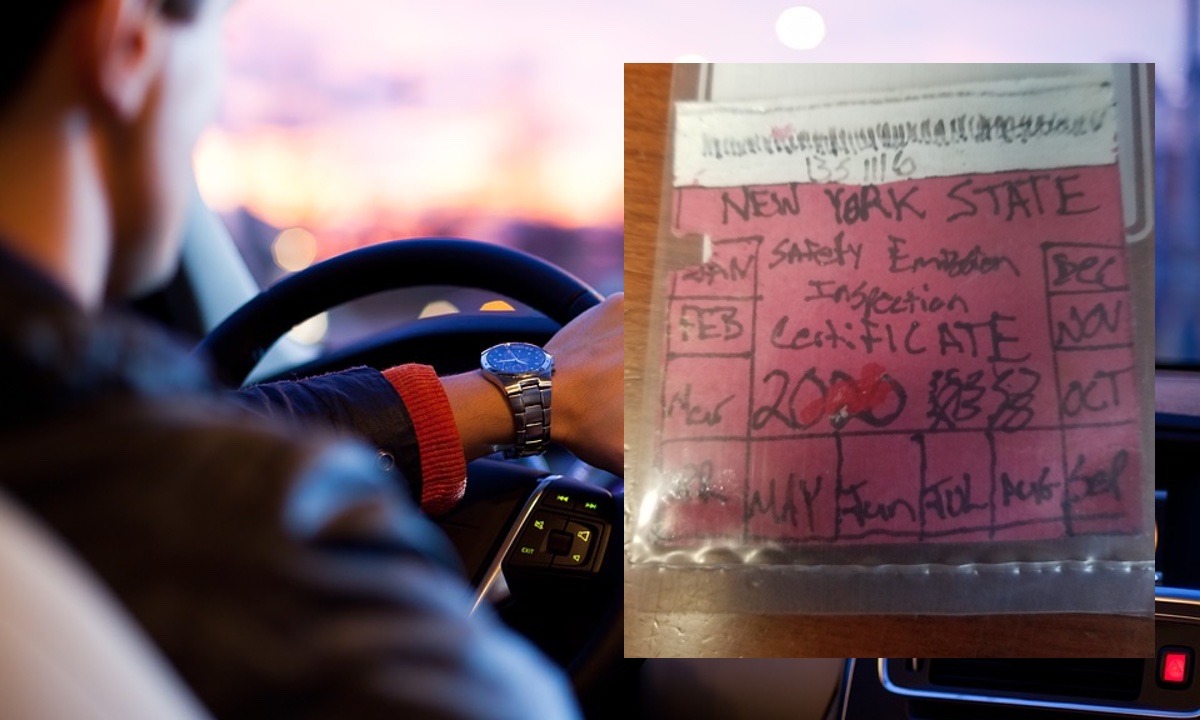 NEW YORK STATE
JAN
Safety Emission
Dec
Inspection
FEB
CertifICATE
NOV
Mar
2020
OCT
MAY
Jun
JUL
AUG
Sep
EXIT